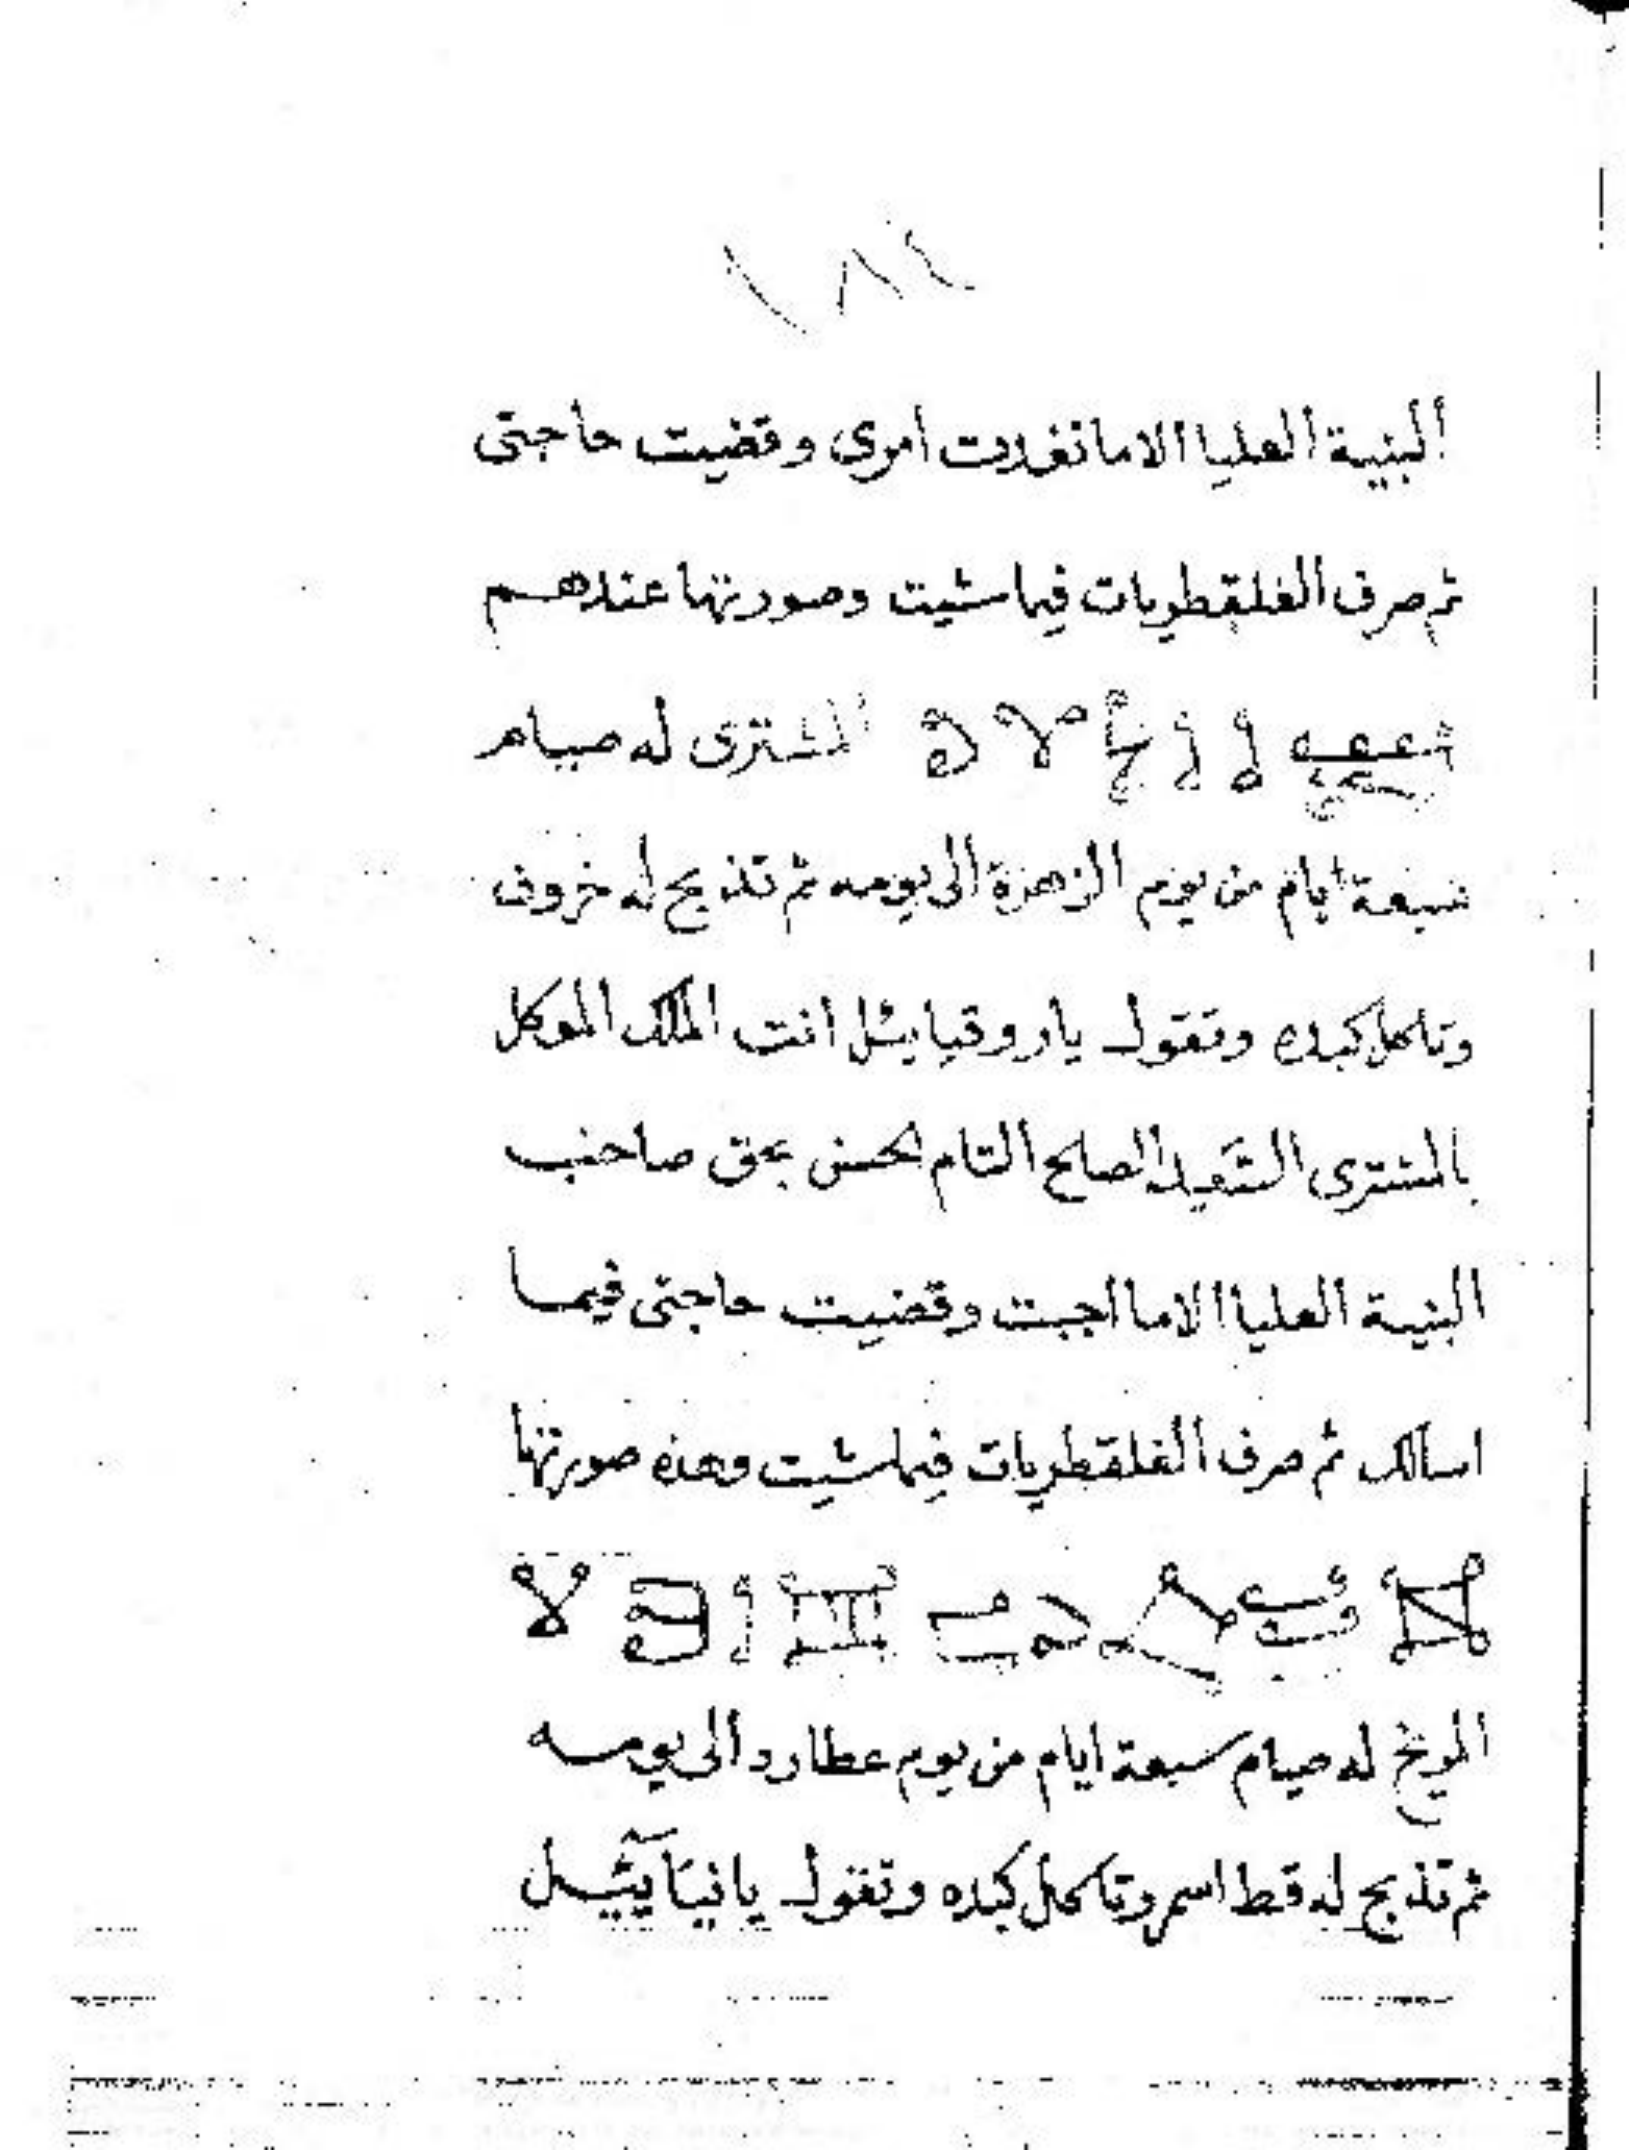 ١٨٤
البنية العليا الا ما نفدت امرى وقضيت حاجتى
ثم صرف الفلقطريات فيما شيت وصورتها عندهم
المشترى له صيام
سبعة ايام من يوم الزهرة الى يومه ثم تذبح له خروف
وتاكل كبده وتقول ياروقيايئل انت الملك الموكل
بالمشترى السعيد الصلح التام الحسن بحق صاحب
البنية العليا الا ما اجبت وقضيت حاجتى فيما
اسالك ثم صرف الفلقطريات فيما شيت وهذه صورتها
المريخ له صيام سبعة ايام من يوم عطارد الى يومه
ثم تذبح له قط اسمر وتاكل كبده وتقول